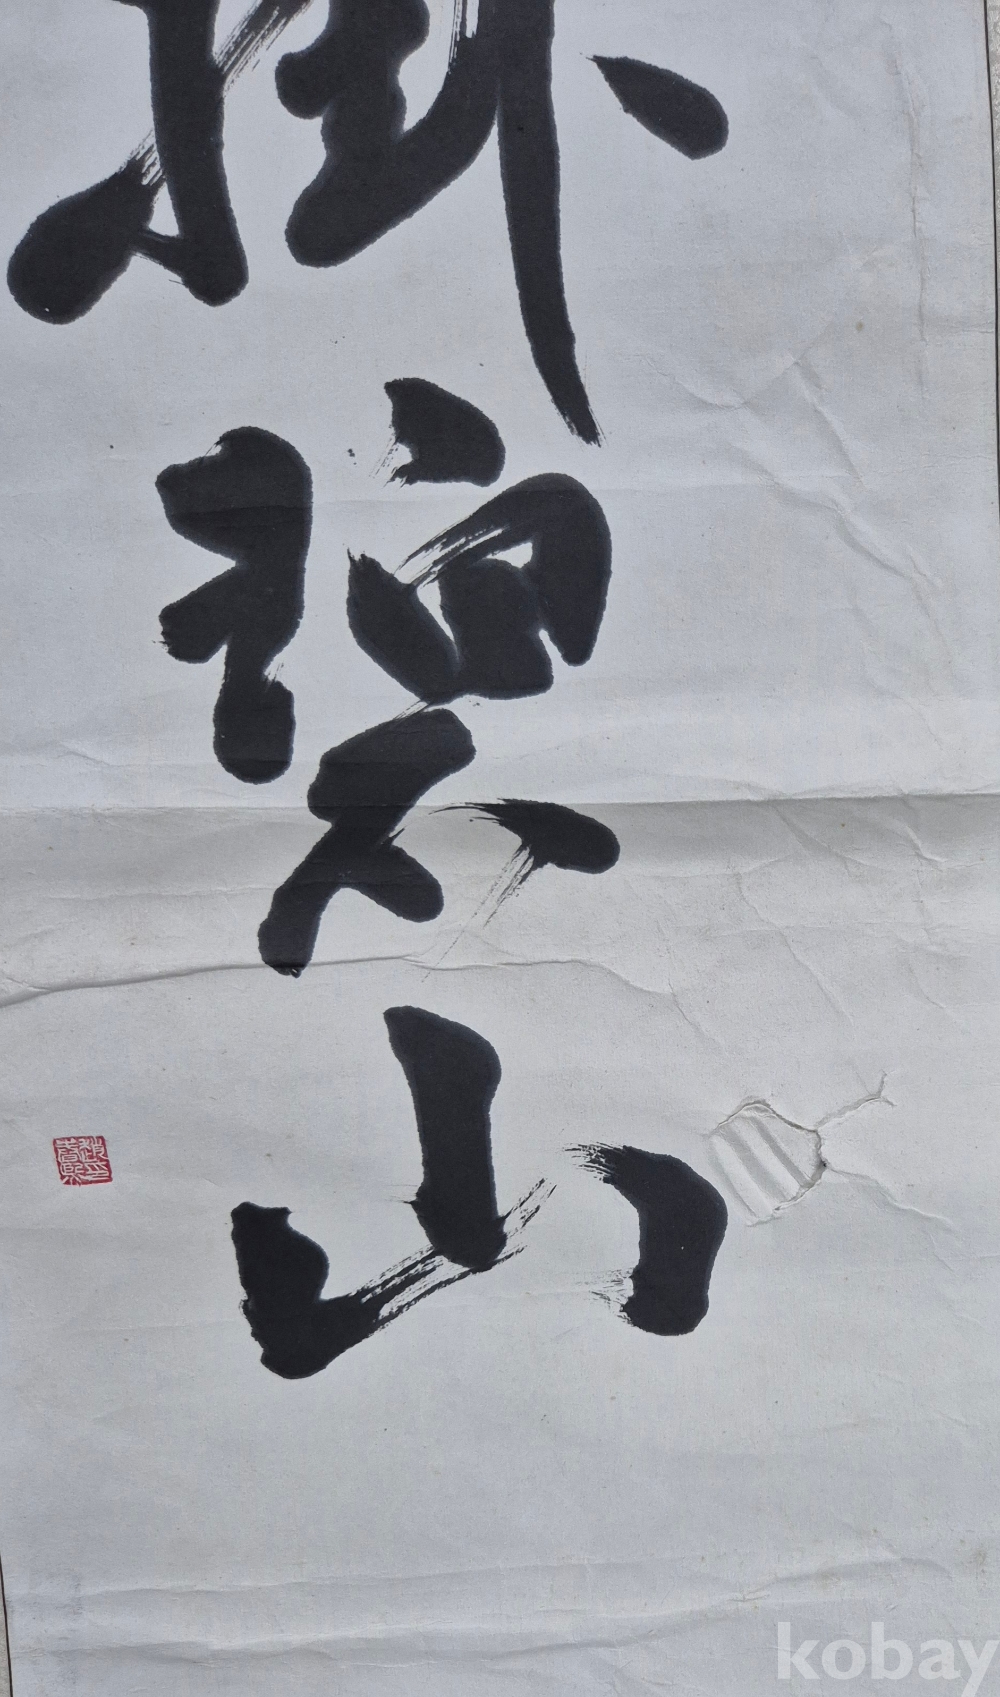 掛
碧
山
kobay